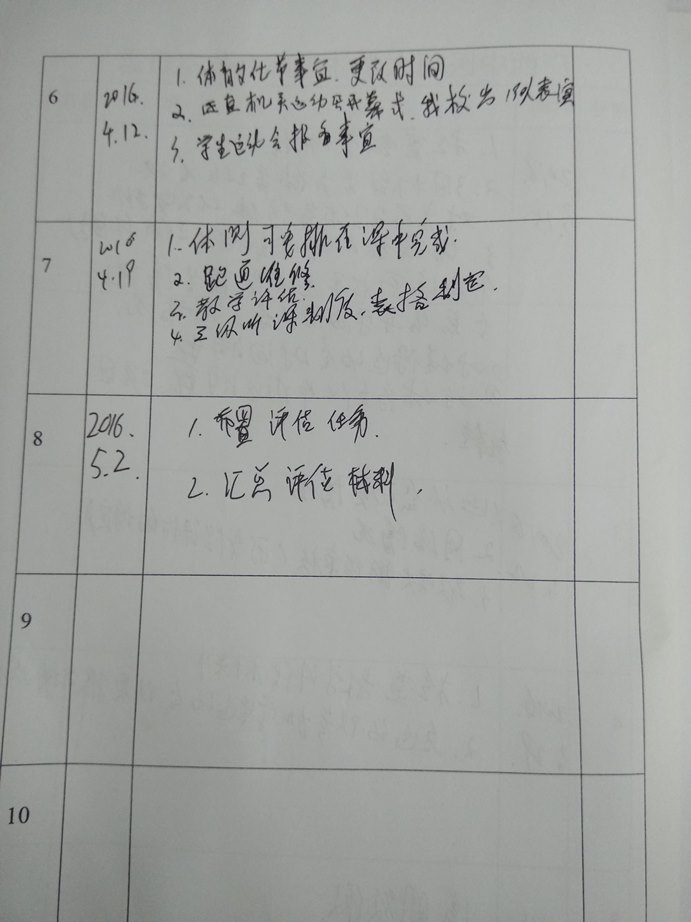 6
2016.
4.12.
1. 体育文化节事宜. 更改时间
2. 区直机关运动会开幕式, 我校出 队表演
3. 学生运动会报名事宜
7
2016
4.19
1. 体测可安排在课中完成.
2. 跑道维修.
3. 教学评估.
4. 三级听课制度, 表格制定.
8
2016.
5.2.
1. 布置评估任务.
2. 汇总评估材料.
9
10